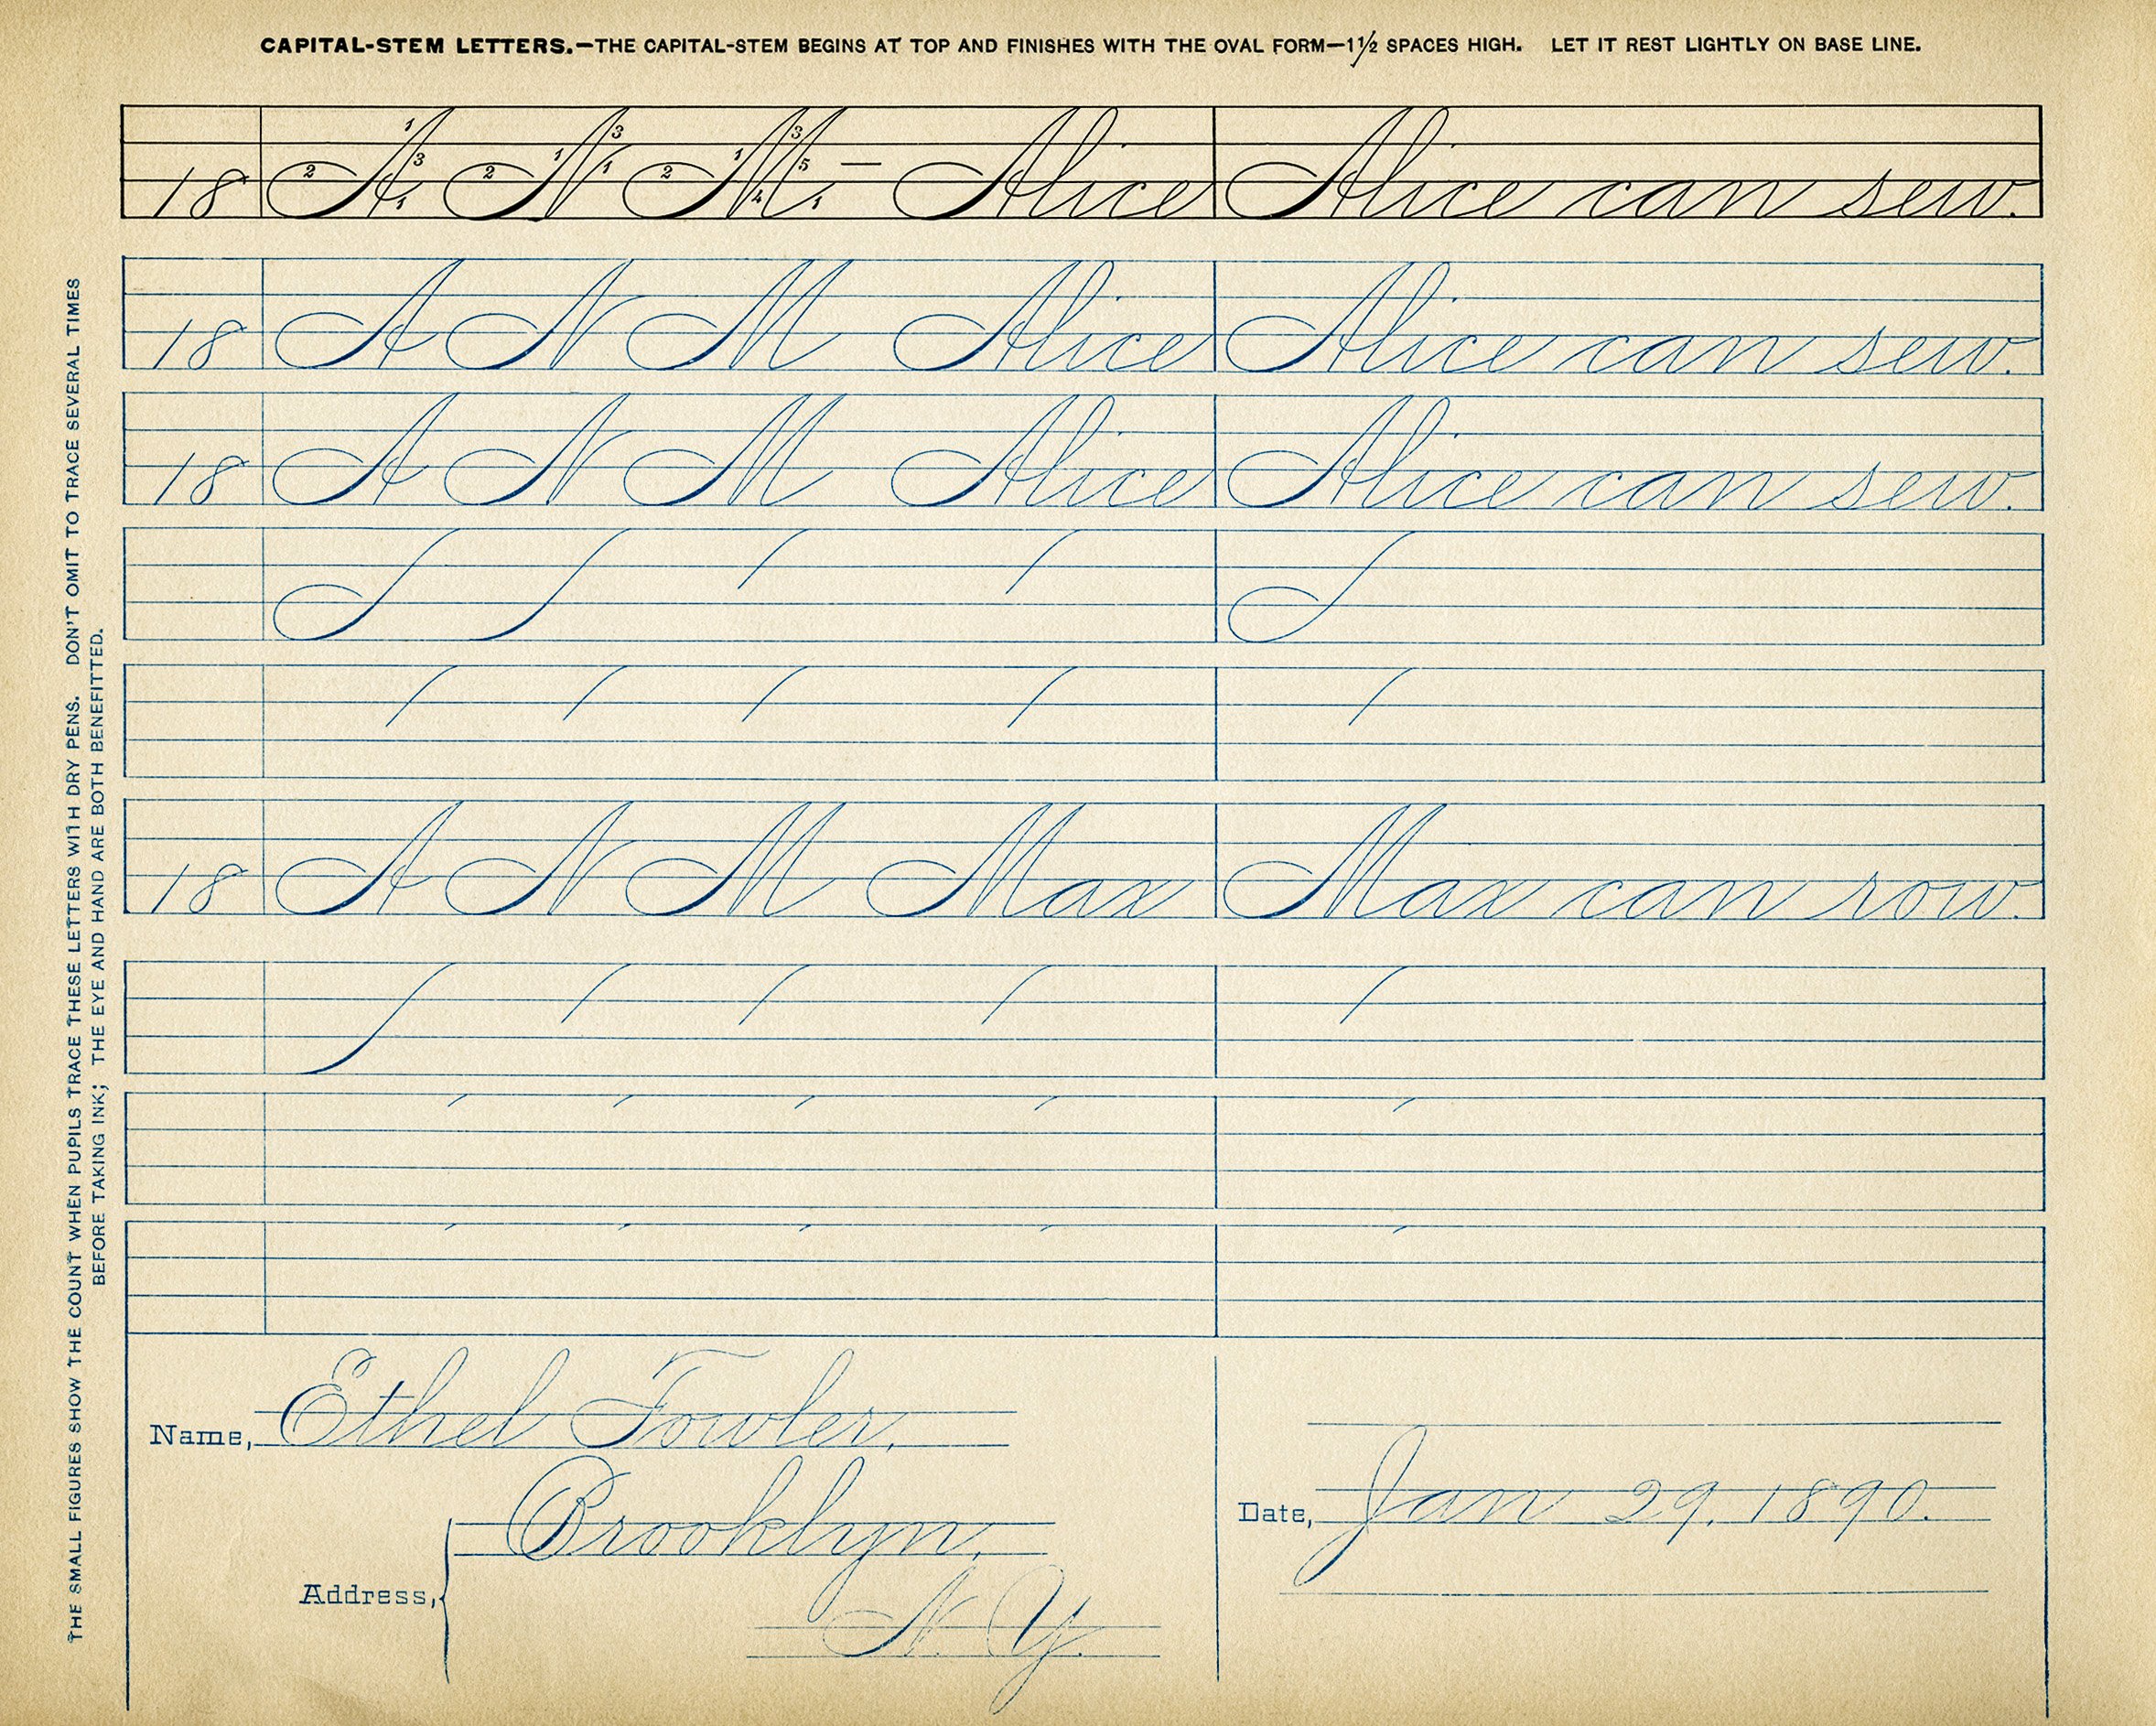 CAPITAL-STEM LETTERS.—THE CAPITAL-STEM BEGINS AT TOP AND FINISHES WITH THE OVAL FORM—1½ SPACES HIGH. LET IT REST LIGHTLY ON BASE LINE.
18 A 1 2 3 1 N 1 2 3 1 M 1 2 3 4 5 1 — Alice Alice can sew.
18 A N M Alice Alice can sew.
18 A N M Alice Alice can sew.
18 A N M Max Max can row.
THE SMALL FIGURES SHOW THE COUNT WHEN PUPILS TRACE THESE LETTERS WITH DRY PENS. DON'T OMIT TO TRACE SEVERAL TIMES
BEFORE TAKING INK; THE EYE AND HAND ARE BOTH BENEFITTED.
Name, Ethel Fowler,
Address, Brooklyn,
N. Y.
Date, Jan 29, 1890.